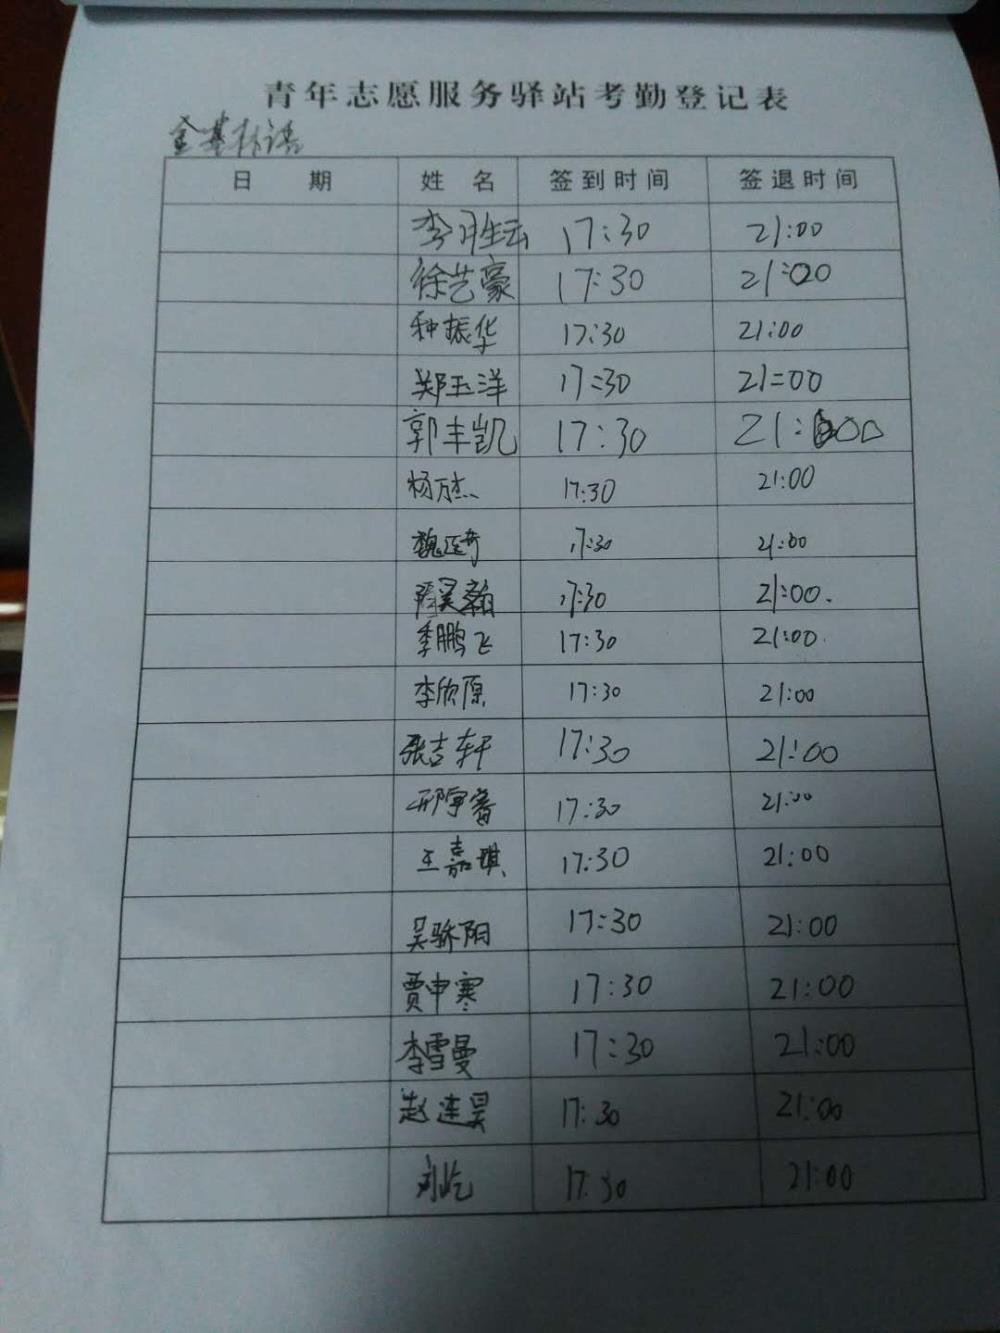 青年志愿服务驿站考勤登记表
金基林语
日 期 姓 名 签到时间 签退时间
李胜云 17:30 21:00
徐艺豪 17:30 21:00
种振华 17:30 21:00
郑玉洋 17:30 21:00
郭丰凯 17:30 21:00
杨万杰 17:30 21:00
魏廷奇 17:30 21:00
昊翰 17:30 21:00.
李鹏飞 17:30 21:00.
李欣原 17:30 21:00
张吉轩 17:30 21:00
邢宇 17:30 21:00
王嘉琪 17:30 21:00
吴骄阳 17:30 21:00
贾申寒 17:30 21:00
李雪曼 17:30 21:00
赵连昊 17:30 21:00
刘屹 17:30 21:00